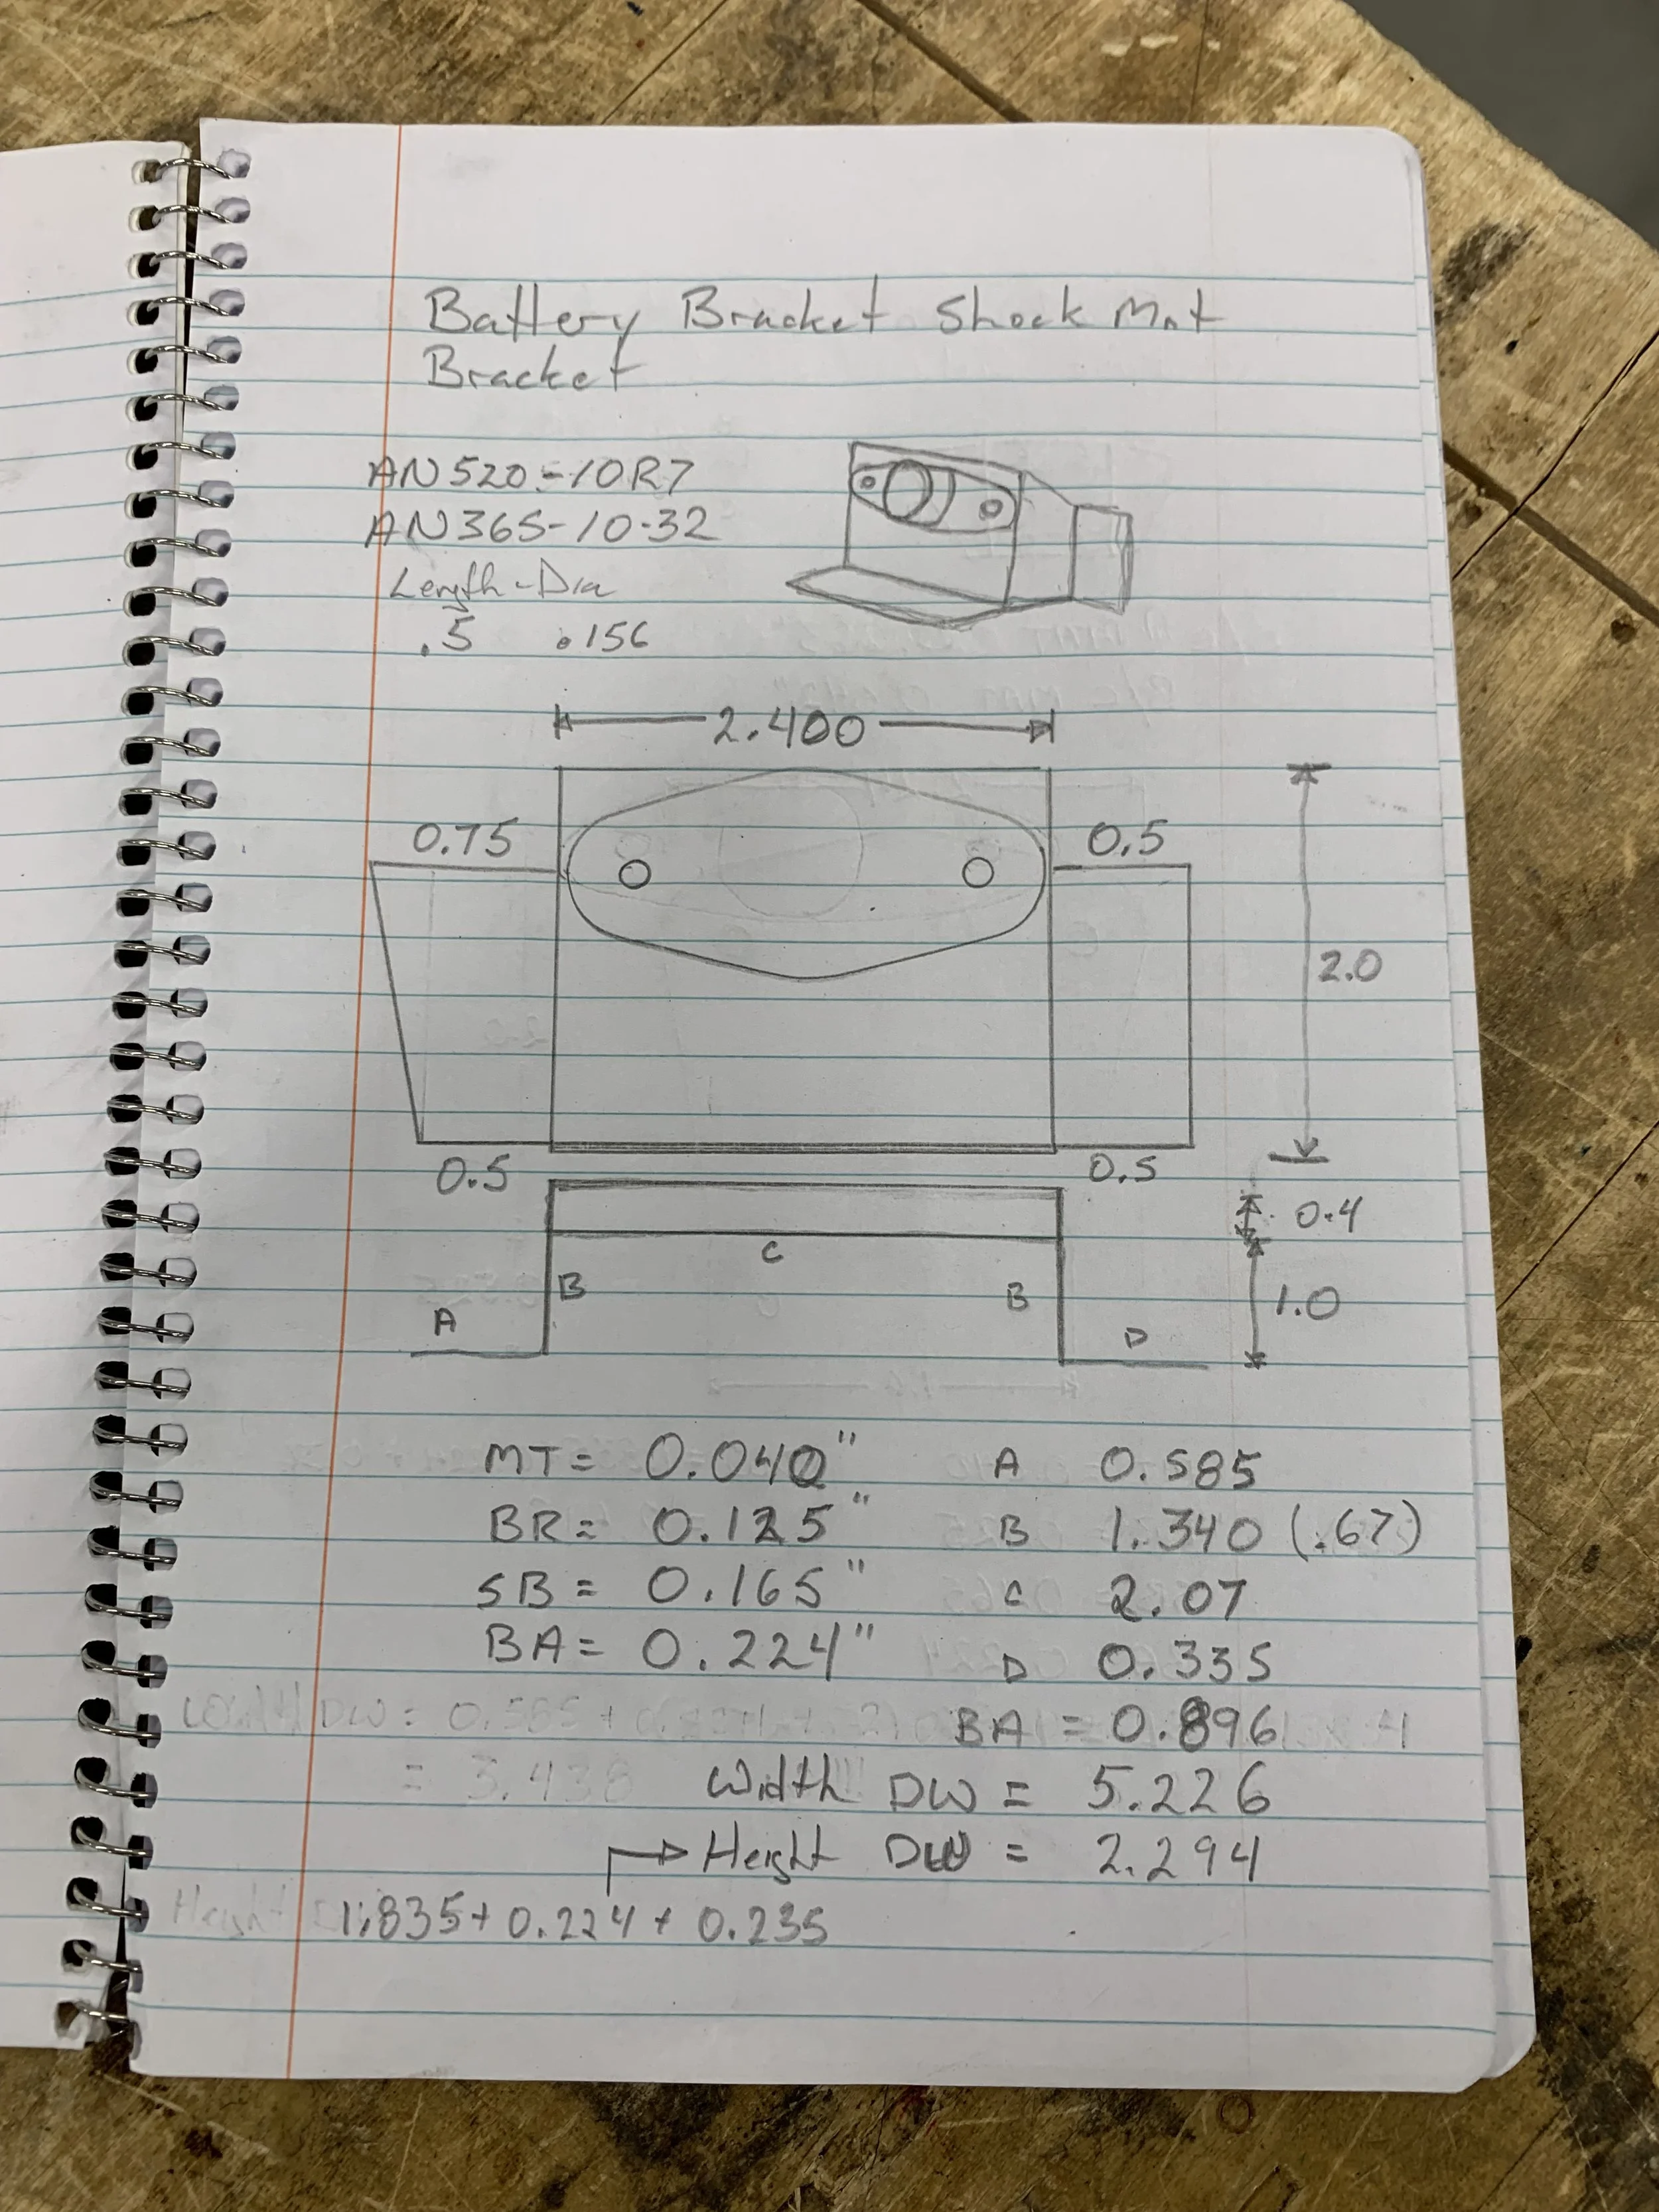 Battery Bracket Shock Mnt
Bracket
AN520-10R7
AN365-10-32
Length - Dia
.5 .156
2.400
0.75 0.5
2.0
0.5 0.5
0.4
C
B B 1.0
A D
MT = 0.040" A 0.585
BR = 0.125" B 1.340 (.67)
SB = 0.165" C 2.07
BA = 0.224" D 0.335
BA = 0.896
= 3.438 Width DW = 5.226
Height DW = 2.294
Height 1.835 + 0.224 + 0.235